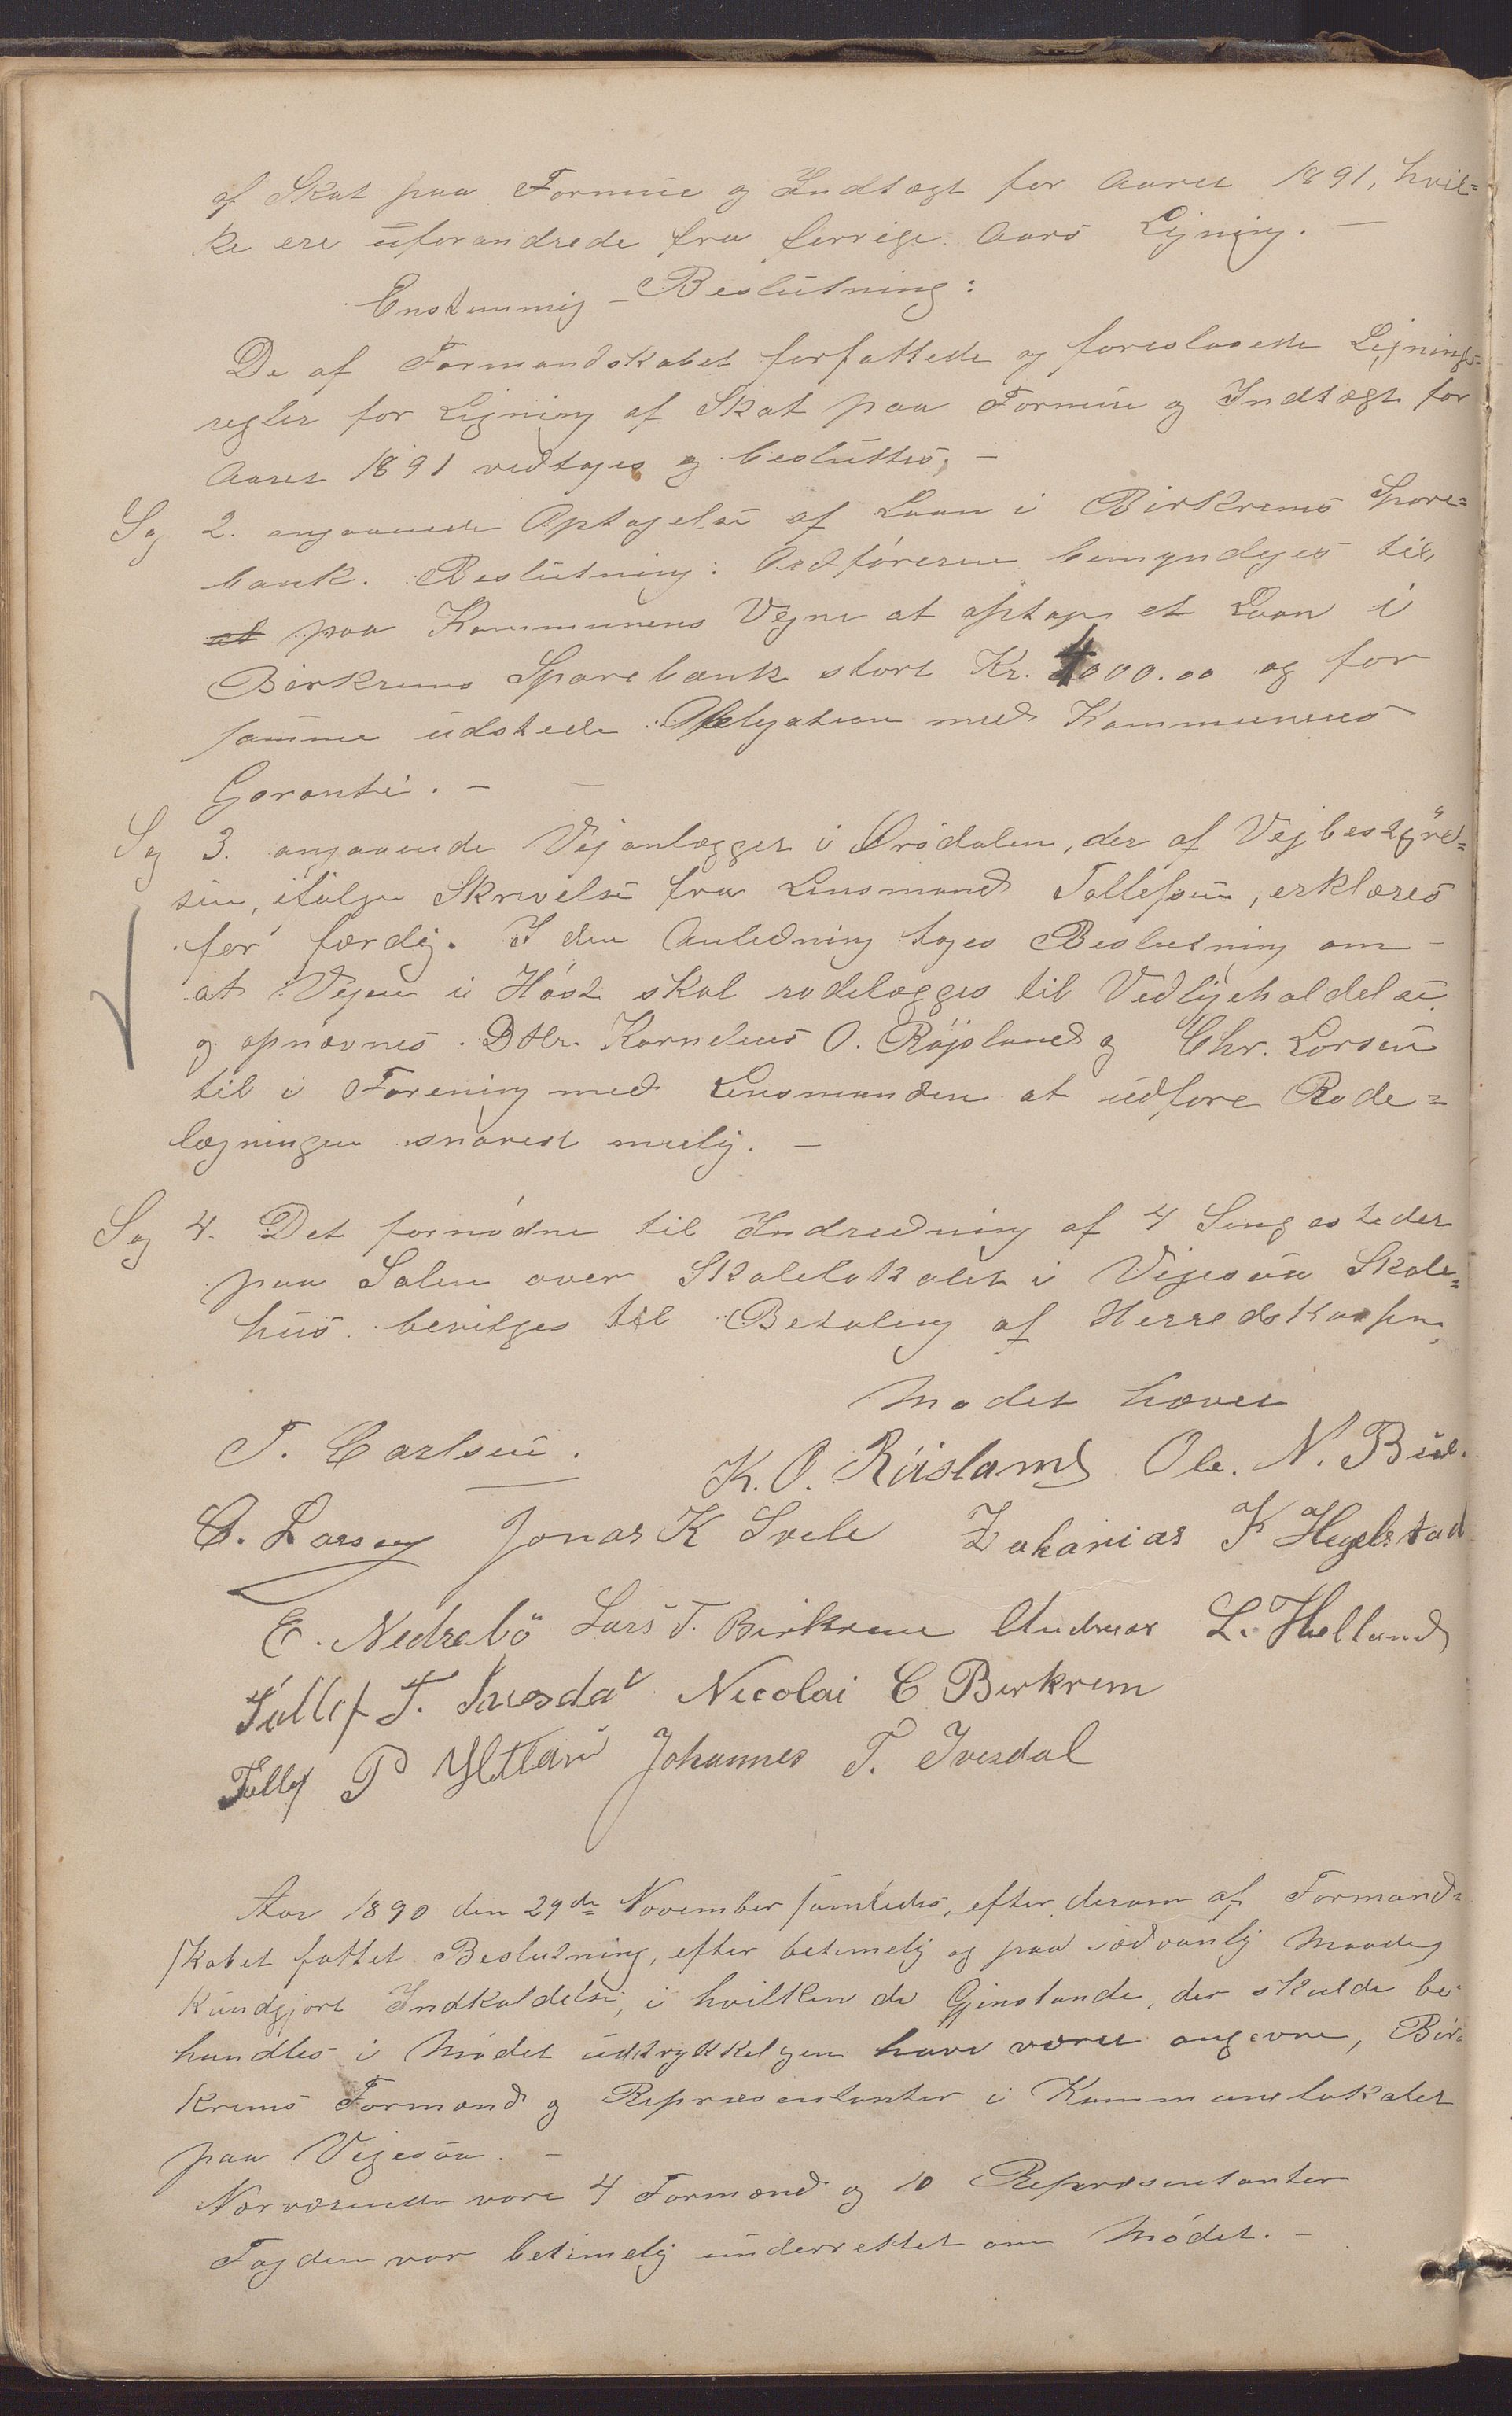 af Skat paa Formue og Indtægt for Aaret 1891, hvil=
ke ere uforandrede fra forrige Aars Ligning. —
Enstemmig Beslutning:
De af Formandskabet forfattede og foreslaaede Lignings=
regler for Ligning af Skat paa Formue og Indtægt for
Aaret 1891 vedtages og besluttes. —
Sag 2. angaaende Optagelse af Laan i Birkrems Spare=
bank. Beslutning: Ordføreren bemyndiges til
at paa Kommunens Vegne at optage et Laan i
Birkrems Sparebank stort Kr. 4000.00 og for
samme udstede Obligation med Kommunens
Garanti. —
Sag 3. angaaende Vejanlægget i Ørsdalen, der af Vejbestyrel=
sen, ifølge Skrivelse fra Lensmand Tollefsen, erklæres
for færdig. I den Anledning toges Beslutning om
at Vejen i Høst skal rodelægges til Vedligeholdelse
og opnævnes DHr. Kornelius O. Røjsland og Chr. Larsen
til i Forening med Lensmanden at udføre Rode=
lægningen snarest mulig. —
Sag 4. Det fornødne til Indredning af 4 Sengesteder
paa Salen over Skolelokalet i Vigesaa Skole=
hus bevilges til Betaling af Herredskassen,
Mødet hævet
T. Carlsen. K. O. Röisland Ole. N. Bue.
C. Larsen Jonas K Svele Zakarias K Hegelstad
E. Nedrebö Lars T. Birkrem Andreas L. Helland
Tollef T. Ivesdal Nicolai C Birkrem
Tollef P Johannes T. Ivesdal
Aar 1890 den 29de November samledes, efter derom af Formand=
skabet fattet Beslutning, efter betimelig og paa sædvanlig Maade
kundgjort Indkaldelse, i hvilken de Gjenstande, der skulde be=
handles i Mødet udtrykkelgen have været angivne, Bir=
krems Formænd og Repræsentanter i Kommunelokalet
paa Vigesaa. —
Nærværende vare 4 Formænd og 10 Repræsentanter
Fogden var betimelig underrettet om Mødet. —